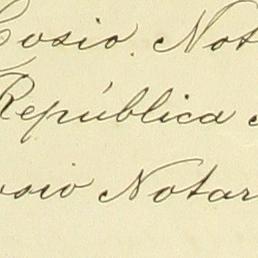 Cosio. Not
República
osio Notar